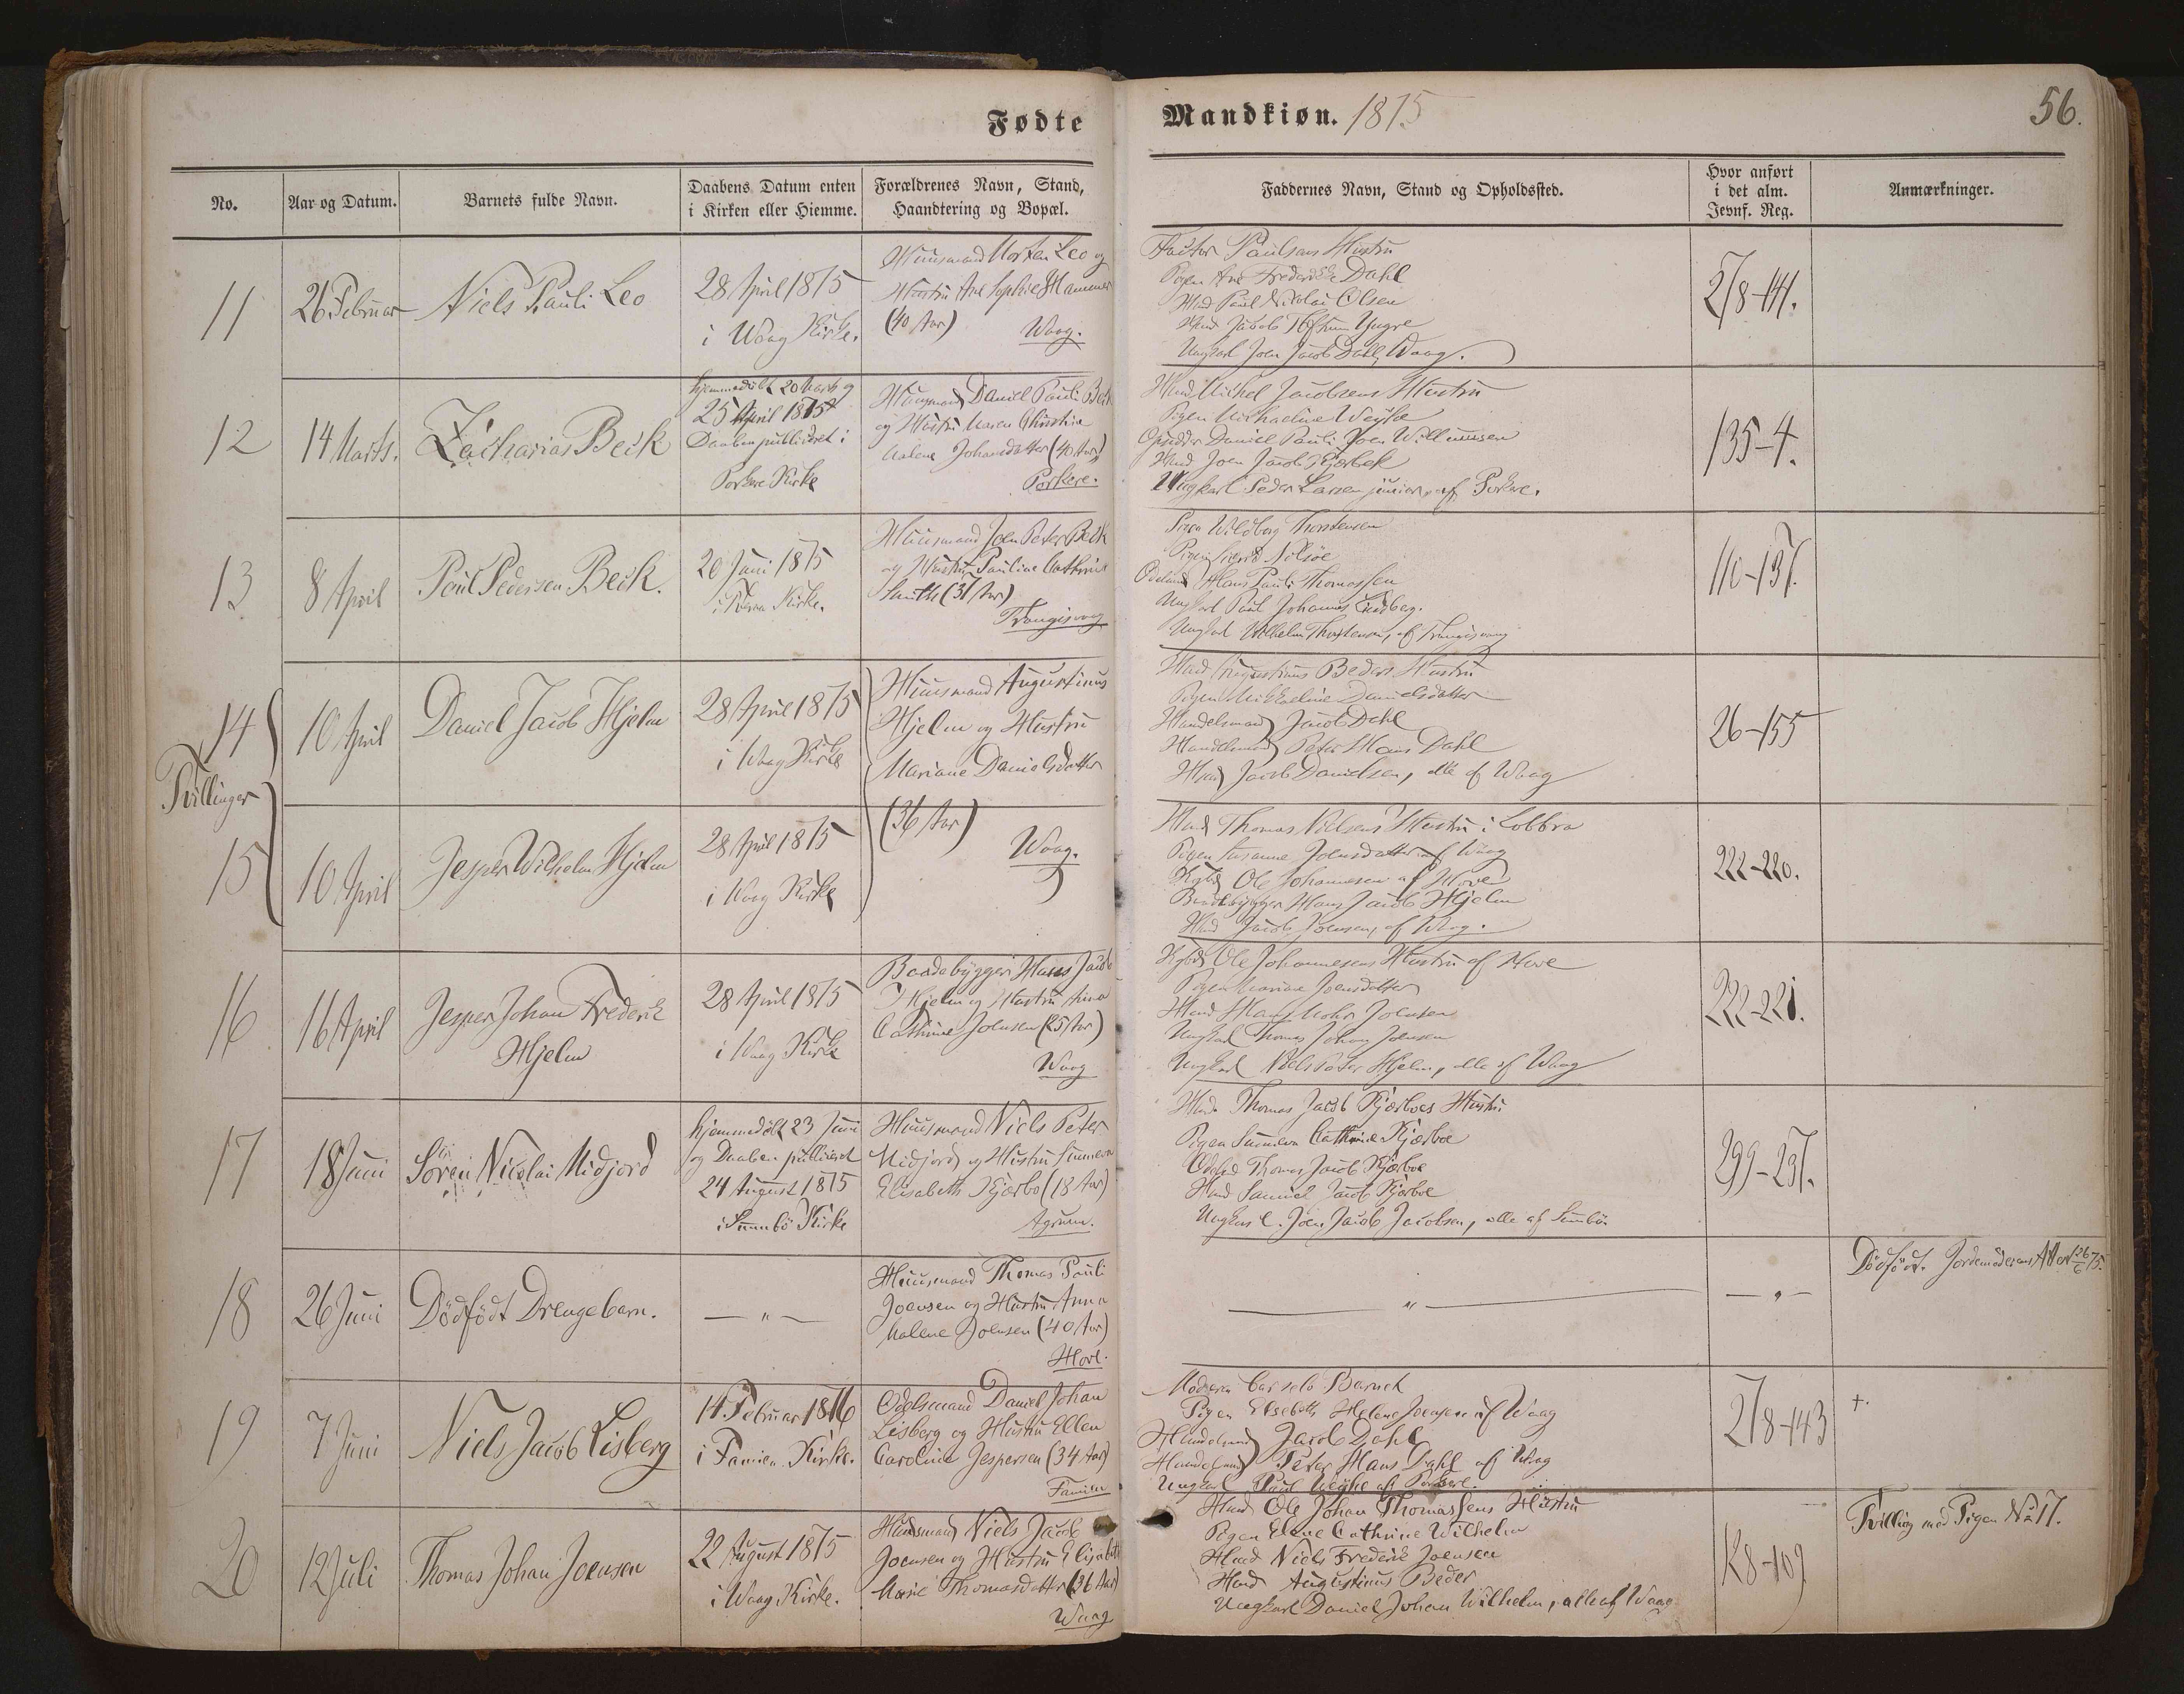 Fødte
Mandkiøn. 1875
56.
No.
Aar og Datum.
Barnets fulde Navn.
Daabens Datum enten
i Kirken eller Hiemme.
Forældrenes Navn, Stand,
Haandtering og Bopæl.
Faddernes Navn, Stand og Opholdssted.
Hvor anført
i det alm.
Jevnf. Reg.
Anmærkninger.
11
26 Februar
Niels Pauli Leo
28 April 1875
i Waag Kirke.
Huusmand Morten Leo og
Hustru Ane Sophie Hammer
(40 Aar)
Waag.
Factor Paulsens Hustru
Pigen Ane Frederikke Dahl
Hmd Paul Nicolai Olsen
Hmd Jacob
Ungkarl Joen Jacob Dahl, Waag.
278-141.
12
14 Marts.
Zacharias Beck
hjemmedøbt 20 Marts og
25 April 1875
Daaben publiceret i
Porkere Kirke
Huusmand Daniel Pauli Beck
og Hustru Maren Christine
Malene Johansdatter (40 Aar)
Porkere.
Hmd Michel Jacobsens Hustru
Pigen Michaeline Weyhe
Daniel Pauli Joen Willumsen
Hmd Joen Jacob Kjærbek
Ungkarl Peder Larsen junior, af Porkere.
135-4.
13
8 April
Poul Pedersen Beck.
20 Juni 1875
Kirke.
Huusmand Joen Peter Beck
og Hustru Pauline Cathrine
Smith (37 Aar)
Trangisvaag
Pigen Wilborg Thorstensen
Pigen Sigrid Nolsøe
Hans Pauli Thomassen
Ungkarl Paul Johannes Lindberg.
Ungkarl Wilhelm Thorstensen, af Trangisvaag
110-137.
14
Tvillinger
10 April
Daniel Jacob Hjelm
28 April 1875
i Waag Kirke
Huusmand Augustinus
Hjelm og Hustru
Mariane Danielsdatter
(36 Aar)
Waag.
Hmd Augustinus Beders Hustru
Pigen Mikkaeline Danielsdatter
Handelsmand Jacob Dahl
Handelsmand Peter Hans Dahl
Hmd Jacob Danielsen, alle af Waag
26-155
15
10 April
Jesper Wilhelm Hjelm
28 April 1875
i Waag Kirke
Hmd Thomas Nielsens Hustru i Lobbra
Pigen Susanne Joensdatter af Waag
Kgbd Ole Johannesen af Hove
Baadebygger Hans Jacob Hjelm
Hmd Jacob Joensen, af Waag.
222-220.
16
16 April
Jesper Johan Frederik
Hjelm
28 April 1875
i Waag Kirke
Baadebygger Hans Jacob
Hjelm og Hustru Anna
Cathrine Joensen (25 Aar)
Waag
Kgbd Ole Johannesens Hustru af Hove
Pigen Mariane Joensdatter
Hmd Hans Mohr Joensen
Ungkarl Thomas Johan Joensen
Ungkarl Niels Peter Hjelm, alle af Waag
222-221.
17
18 Juni
Sören Nicolai Midjord
hjemmedøbt 23 Juni
og Daaben publiceret
24 August 1875
i Sumbö Kirke
Huusmand Niels Peter
Midjord og Hustru Sunneva
Elisabeth Kjærbo (18 Aar)
Agrum.
Hmd Thomas Jacob Kjærboes Hustru
Pigen Sunneva Cathrine Kjærboe
Odelsd Thomas Jacob Kjærboe
Hmd Samuel Jacob Kjærboe
Ungkarl Joen Jacob Jacobsen, alle af Sumbö.
299-297.
18
26 Juni
Dödfödt Drengebarn.
— " —
Huusmand Thomas Pauli
Joensen og Hustru Anna
Malene Joensen (40 Aar)
Hove.
— " —
— " —
Dödfödt. Jordemoderens Attest 26/6 75.
19
7 Juni
Niels Jacob Lisberg
14 Februar 1876
i Famien Kirke.
Odelsmand Daniel Johan
Lisberg og Hustru Ellen
Caroline Jespersen (34 Aar)
Famien
Moderen
Pigen Elsebeth Helene Joensen af Waag
Handelsmand Jacob Dahl
Handelsmand Peter Hans Dahl af Waag
Ungkarl Poul Weyhe af Porkere.
278-143
+.
20
12 Juli
Thomas Johan Joensen
22 August 1875
i Waag Kirke.
Huusmand Niels Jacob
Joensen og Hustru Elisabeth
Marie Thomasdatter (36 Aar)
Waag
Hmd Ole Johan Thomassens Hustru
Pigen Elene Cathrine Wilhelm
Hmd Niels Frederik Joensen
Hmd Augustinus Beder
Ungkarl Daniel Johan Wilhelm, alle af Waag
128-109
Tvilling med Pigen No 17.